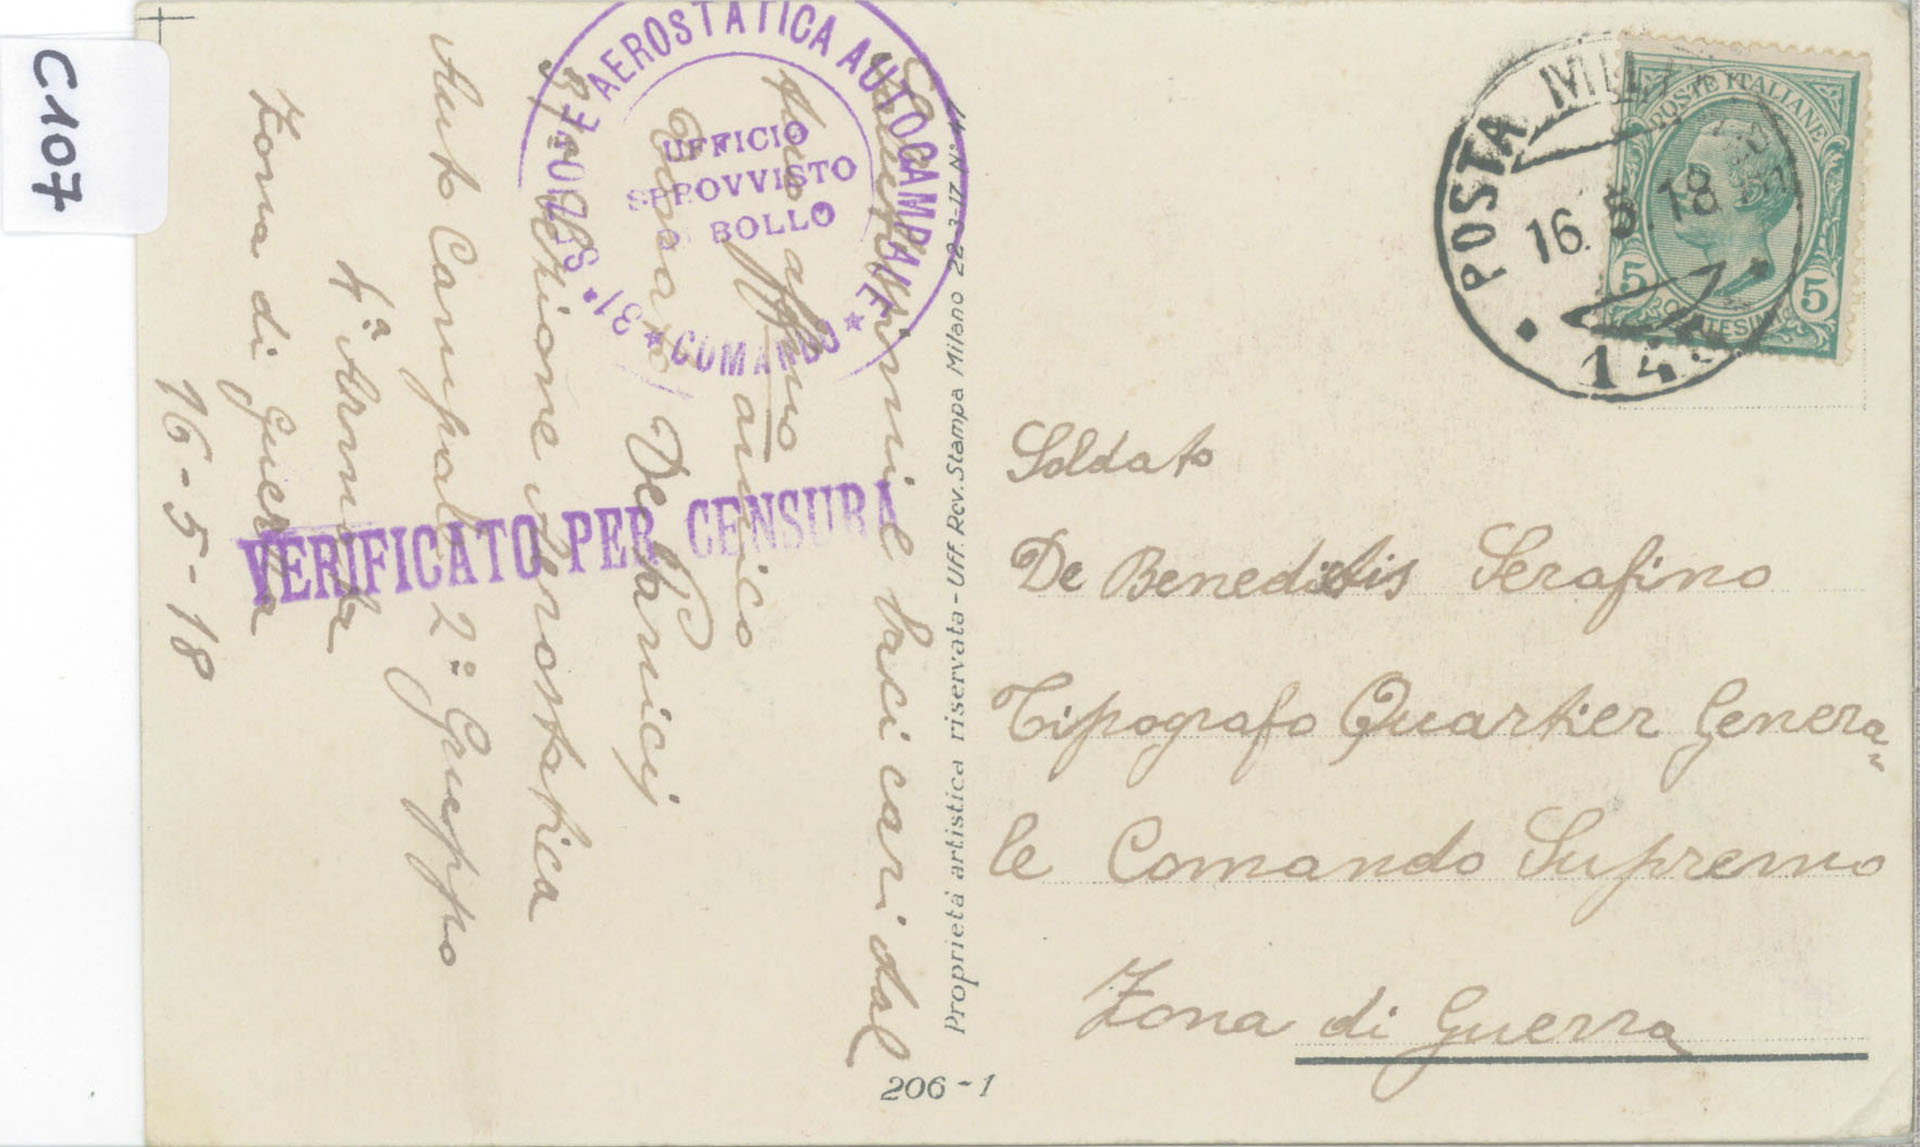 C107
31ª SEZIONE AEROSTATICA AUTOCAMPALE
★ COMANDO ★
UFFICIO
SPROVVISTO
DI BOLLO
VERIFICATO PER CENSURA
Salutissimi e baci cari dal
tuo affmo
amico
Donato De Panicij
31ª Sezione Aerostatica
Auto Campale 2º Gruppo
4ª Armata
Zona di guerra
16-5-18
Proprietà artistica riservata - Uff. Rev. Stampa Milano 22-3-17 N.° 47
206-1
POSTA MILITARE
16.5.18
14
POSTE ITALIANE
5 5
CENTESIMI
Soldato
De Benedictis Serafino
Tipografo Quartier Genera„
le Comando Supremo
Zona di Guerra